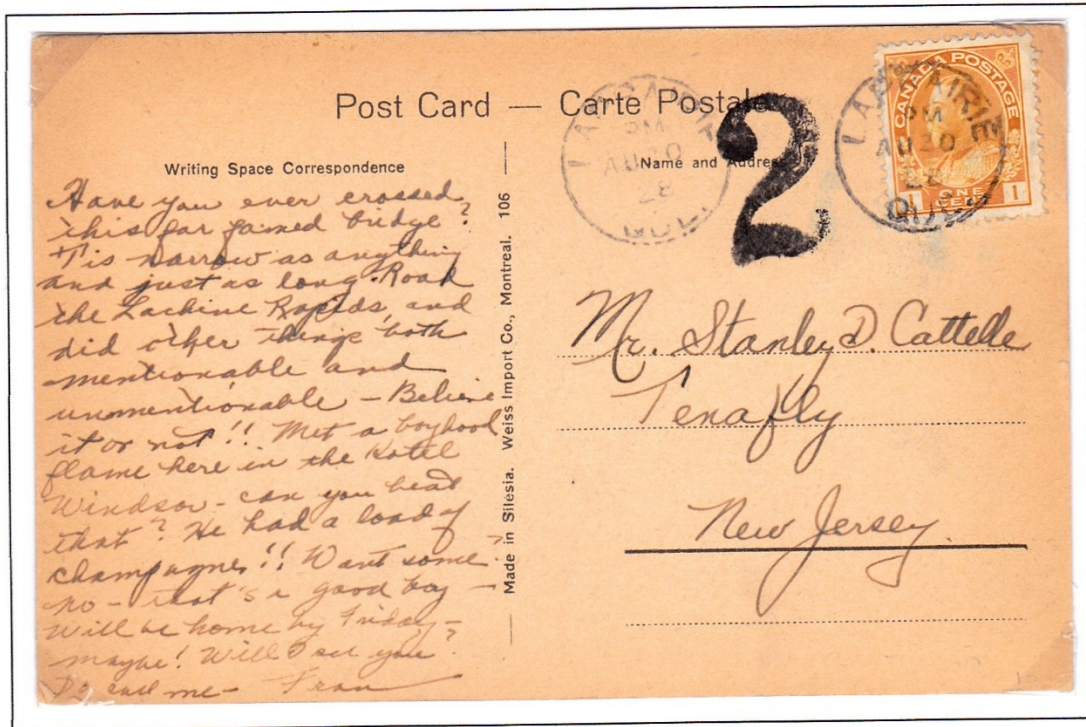 Post Card — Carte Postale
Writing Space Correspondence
Name and Address
Have you ever crossed
this far famed bridge?
'Tis narrow as anything
and just as long. Road
the Lachine Rapids, and
did other things both
mentionable and
unmentionable – Believe
it or not!! Met a boyhood
flame here in the Hotel
Windsor – can you beat
that? He had a load of
champagne!! Want some?
no – that's a good boy –
Will be home by Friday –
maybe! Will I see you?
Do call me – Fran
Made in Silesia. Weiss Import Co., Montreal. 106
LAPRAIRIE
PM
AU 20
28
QUE.
2
CANADA POSTAGE
1 ONE CENT 1
LAPRAIRIE
PM
AU 20
28
QUE.
Mr. Stanley D. Cattelle
Tenafly
New Jersey.